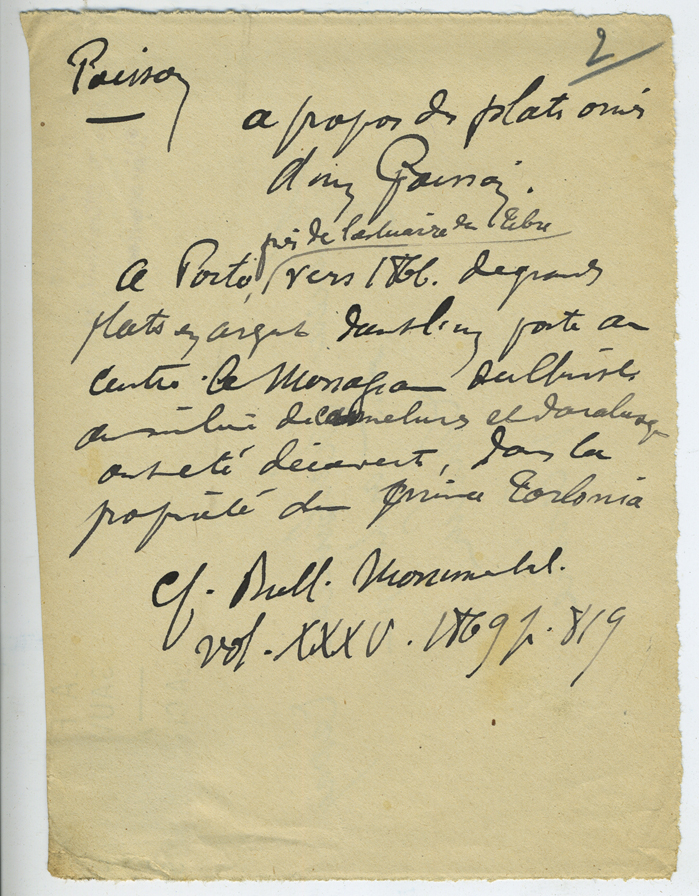 Poisson
2
a propos des plats ornés
d'un Poisson.
près de l'estuaire du Tibre
A Porto, vers 1866. de grands
plats en argent dont l'un porte au
centre le Monogram du Christ
au milieu de cannelures et d'arabesq
ont été découverts, dans la
propriété du prince Torlonia
cf. Bull. Monumental.
vol. XXXV. 1869 p. 819